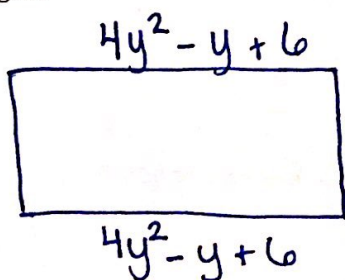 4y² - y + 6
4y² - y + 6